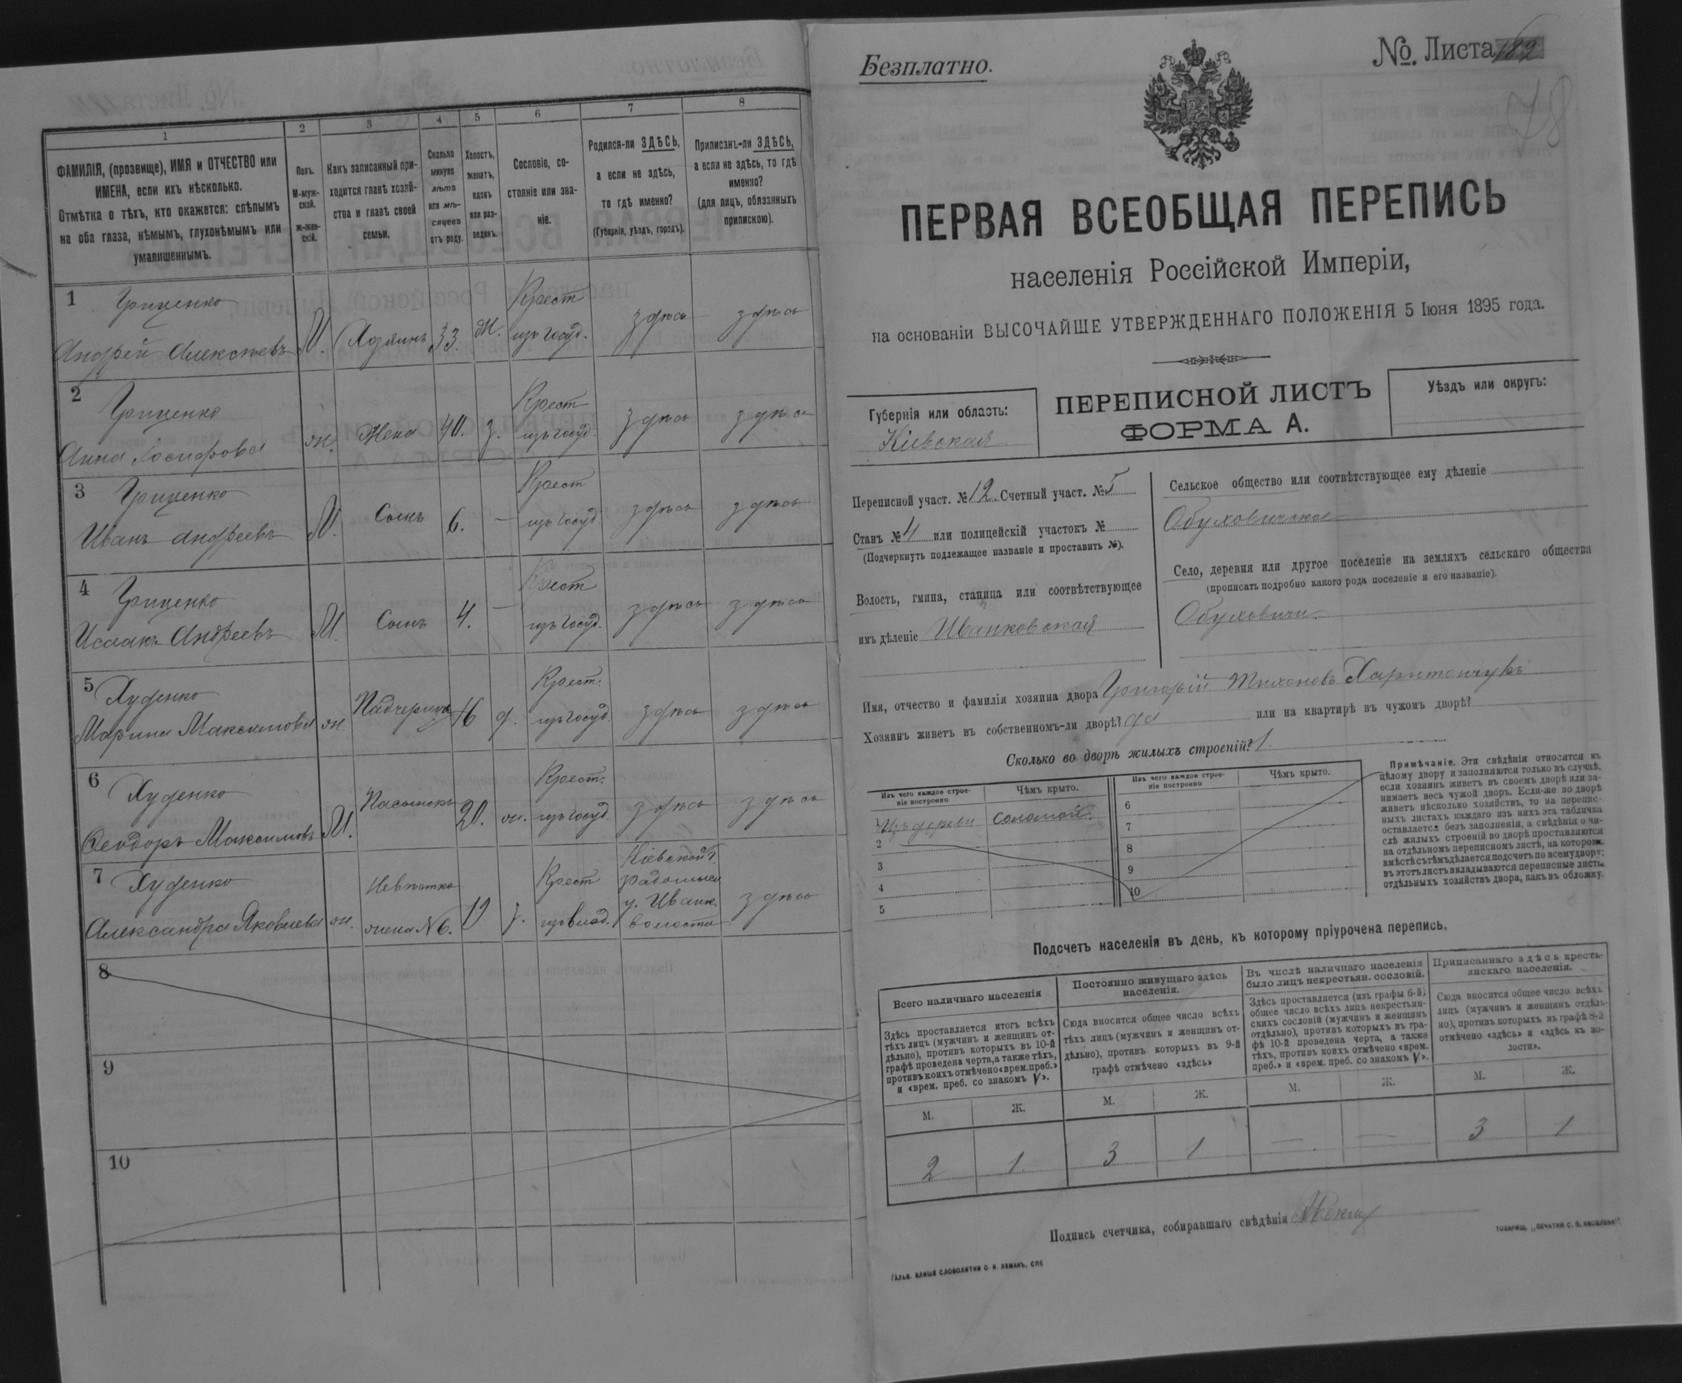 1
2
3
4
5
6
7
8
ФАМИЛІЯ, (прозвище), ИМЯ и ОТЧЕСТВО или
ИМЕНА, если ихъ нѣсколько.
Отмѣтка о тѣхъ, кто окажется: слѣпымъ
на оба глаза, нѣмымъ, глухонѣмымъ или
умалишеннымъ.
Полъ.
М-муж-
ской.
ж-жен-
скій.
Какъ записанный при-
ходится главѣ хозяй-
ства и главѣ своей
семьи.
Сколько
минуло
лѣтъ
или мѣ-
сяцевъ
отъ роду.
Холостъ,
женатъ,
вдовъ
или раз-
веденъ.
Сословіе, со-
стояніе или зва-
ніе.
Родился-ли ЗДѢСЬ,
а если не здѣсь,
то гдѣ именно?
(Губернія, уѣздъ, городъ).
Приписанъ-ли ЗДѢСЬ,
а если не здѣсь, то гдѣ
именно?
(для лицъ, обязанныхъ
припискою).
1 Гриценко
Андрей Алексѣевъ М. Хозяинъ 33. ж. Крест. изъ госуд. здѣсь здѣсь
2 Гриценко
Анна Іосифова ж. Жена 40. з. Крест. изъ госуд. здѣсь здѣсь
3 Гриценко
Иванъ Андреевъ М. Сынъ 6. — Крест. изъ госуд. здѣсь здѣсь
4 Гриценко
Исаакъ Андреевъ М. Сынъ 4. — Крест. изъ госуд. здѣсь здѣсь
5 Худенко
Марина Максимова ж. Падчерица 16 д. Крест. изъ госуд. здѣсь здѣсь
6 Худенко
Ѳеодоръ Максимовъ М. Пасынокъ 20. ж. Крест. изъ госуд. здѣсь здѣсь
7 Худенко
Александра Яковлева ж. Невѣстка жена №6. 19 з. Крест. изъ влад. Кіевской г. Радомысл. у. Иванк. волости здѣсь
8
9
10
Безплатно.
№. Листа 182
78
ПЕРВАЯ ВСЕОБЩАЯ ПЕРЕПИСЬ
населенія Россійской Имперіи,
на основаніи ВЫСОЧАЙШЕ УТВЕРЖДЕННАГО ПОЛОЖЕНІЯ 5 Іюня 1895 года.
Губернія или область:
Кіевская
ПЕРЕПИСНОЙ ЛИСТЪ
ФОРМА А.
Уѣздъ или округъ:
Переписной участ. № 12. Счетный участ. № 5
Станъ № 4 или полицейскій участокъ №
(Подчеркнуть подлежащее названіе и проставить №).
Волость, гмина, станица или соотвѣтствующее
имъ дѣленіе Иванковская
Сельское общество или соотвѣтствующее ему дѣленіе
Обуховичское
Село, деревня или другое поселеніе на земляхъ сельскаго общества
(прописать подробно какого рода поселеніе и его названіе).
Обуховичи.
Имя, отчество и фамилія хозяина двора Григорій Тихоновъ Харитончукъ
Хозяинъ живетъ въ собственномъ-ли дворѣ? да или на квартирѣ въ чужомъ дворѣ?
Сколько во дворѣ жилыхъ строеній? 1.
Изъ чего каждое строе-
ніе построено
Чѣмъ крыто.
Изъ чего каждое строе-
ніе построено
Чѣмъ крыто.
Изъ дерева соломой.
2
3
4
5
6
7
8
9
10
Примѣчаніе. Эти свѣдѣнія относятся къ
цѣлому двору и заполняются только въ случаѣ,
если хозяинъ живетъ въ своемъ дворѣ или за-
нимаетъ весь чужой дворъ. Если-же во дворѣ
живетъ нѣсколько хозяйствъ, то на перепис-
ныхъ листахъ каждаго изъ нихъ эта табличка
оставляется безъ заполненія, а свѣдѣнія о чи-
слѣ жилыхъ строеній во дворѣ проставляются
на отдѣльномъ переписномъ листѣ, на которомъ
вмѣстѣ съ тѣмъ дѣлается подсчетъ по всему двору;
въ этотъ листъ вкладываются переписные листы
отдѣльныхъ хозяйствъ двора, какъ въ обложку.
Подсчетъ населенія въ день, къ которому пріурочена перепись.
Всего наличнаго населенія
Здѣсь проставляется итогъ всѣхъ
тѣхъ лицъ (мужчинъ и женщинъ от-
дѣльно), противъ которыхъ въ 10-й
графѣ проведена черта, а также тѣхъ,
противъ коихъ отмѣчено «врем. преб.»
и «врем. преб. со знакомъ V».
Постоянно живущаго здѣсь
населенія.
Сюда вносится общее число всѣхъ
тѣхъ лицъ (мужчинъ и женщинъ от-
дѣльно), противъ которыхъ въ 9-й
графѣ отмѣчено «здѣсь»
Въ числѣ наличнаго населенія
было лицъ некрестьян. сословій.
Здѣсь проставляется (изъ графы 6-й)
общее число всѣхъ лицъ некрестьян-
скихъ сословій (мужчинъ и женщинъ
отдѣльно), противъ которыхъ въ гра-
фѣ 10-й проведена черта, а также
тѣхъ, противъ коихъ отмѣчено «врем.
преб.» и «врем. преб. со знакомъ V».
Приписаннаго здѣсь кресть-
янскаго населенія.
Сюда вносится общее число всѣхъ
лицъ (мужчинъ и женщинъ отдѣль-
но), противъ которыхъ въ графѣ 8-й
отмѣчено «здѣсь» и «здѣсь къ во-
лости».
М. Ж. М. Ж. М. Ж. М. Ж.
2 1 3 1 — — 3 1
Подпись счетчика, собиравшаго свѣдѣнія
ГАЛЬВ. КЛИШЕ СЛОВОЛИТНИ О. И. ЛЕМАНЪ, СПБ
ТОВАРИЩ. „ПЕЧАТНЯ С. П. ЯКОВЛЕВА“.